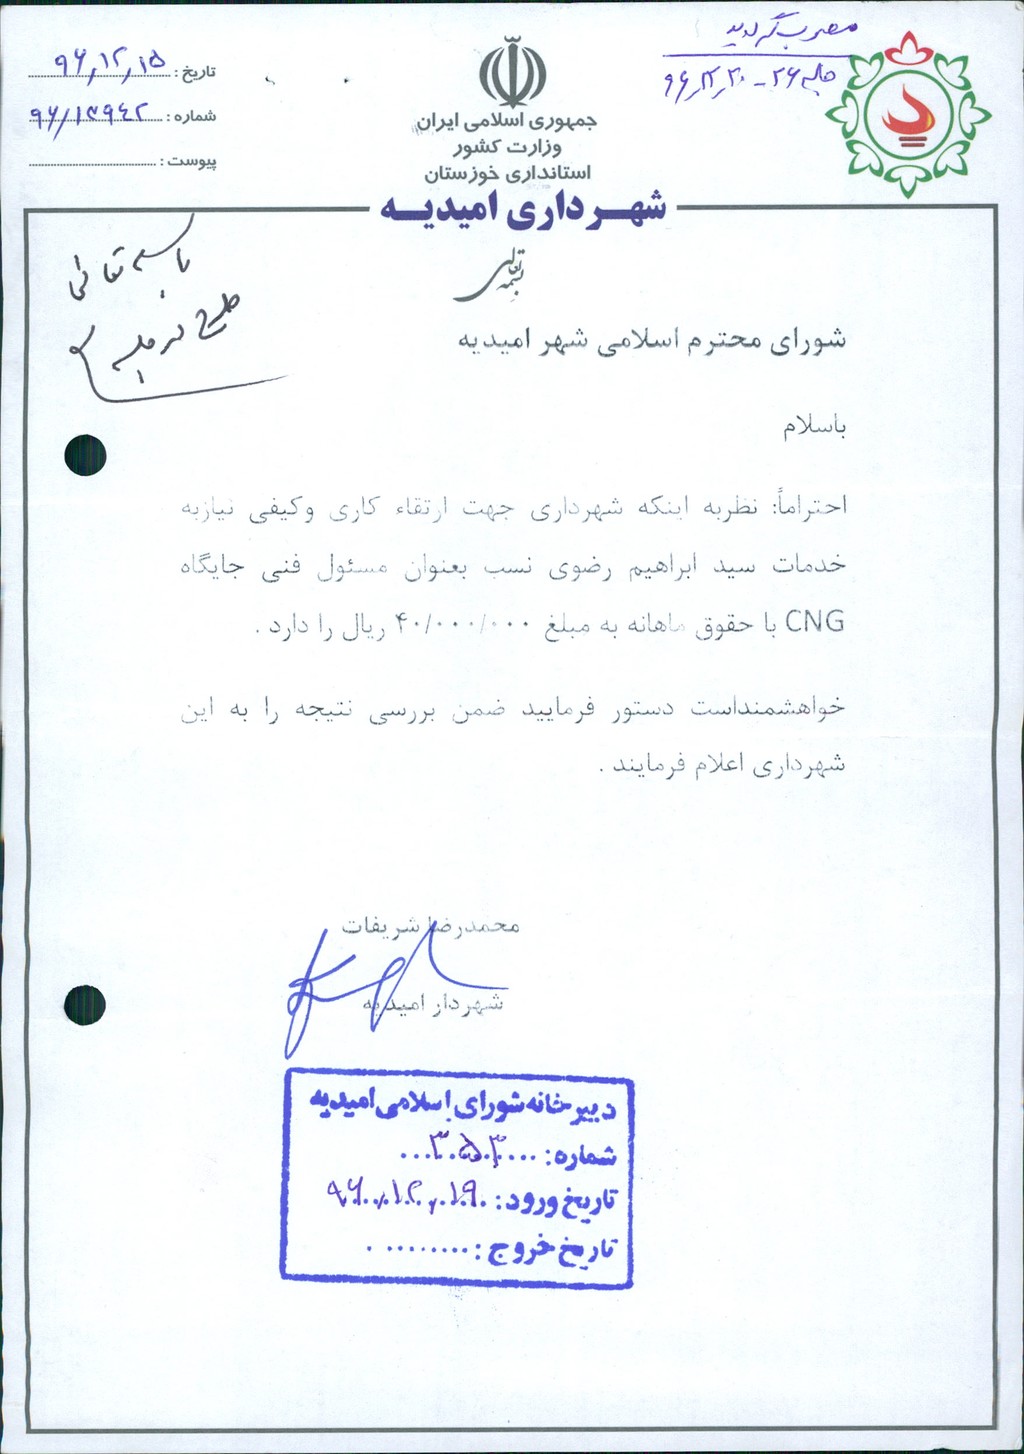 مصوب گردید
جلسه ۲۶ - ۹۶,۱۲,۲۰
تاریخ : ۹۶,۱۲,۱۵
شماره : ۹۶/۱۳۹۴۲
پیوست :
جمهوری اسلامی ایران
وزارت کشور
استانداری خوزستان
شهرداری امیدیه
بسمه تعالی
باسمه تعالی
طرح در جلسه
شورای محترم اسلامی شهر امیدیه
باسلام
احتراماً: نظربه اینکه شهرداری جهت ارتقاء کاری وکیفی نیازبه
خدمات سید ابراهیم رضوی نسب بعنوان مسئول فنی جایگاه
CNG با حقوق ماهانه به مبلغ ۴۰/۰۰۰/۰۰۰ ریال را دارد .
خواهشمنداست دستور فرمایید ضمن بررسی نتیجه را به این
شهرداری اعلام فرمایند .
محمدرضا شریفات
شهردار امیدیه
دبیرخانه شورای اسلامی امیدیه
شماره : ۳۵۳
تاریخ ورود : ۹۶,۱۲,۱۹
تاریخ خروج :